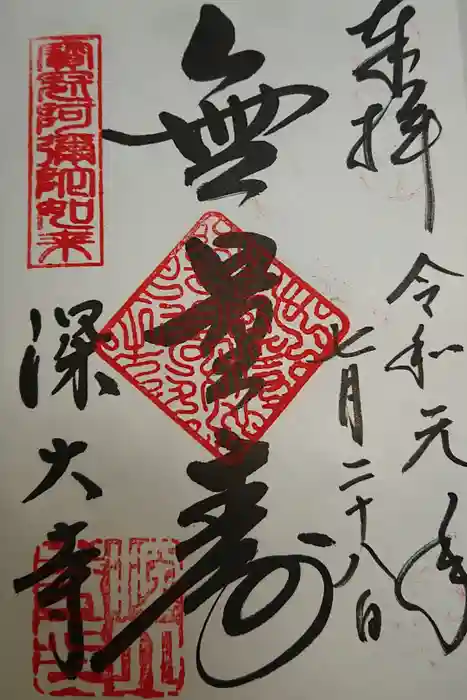 奉拝
令和元年
七月二十八日
無量寿
寶冠阿彌陀如来
深大寺